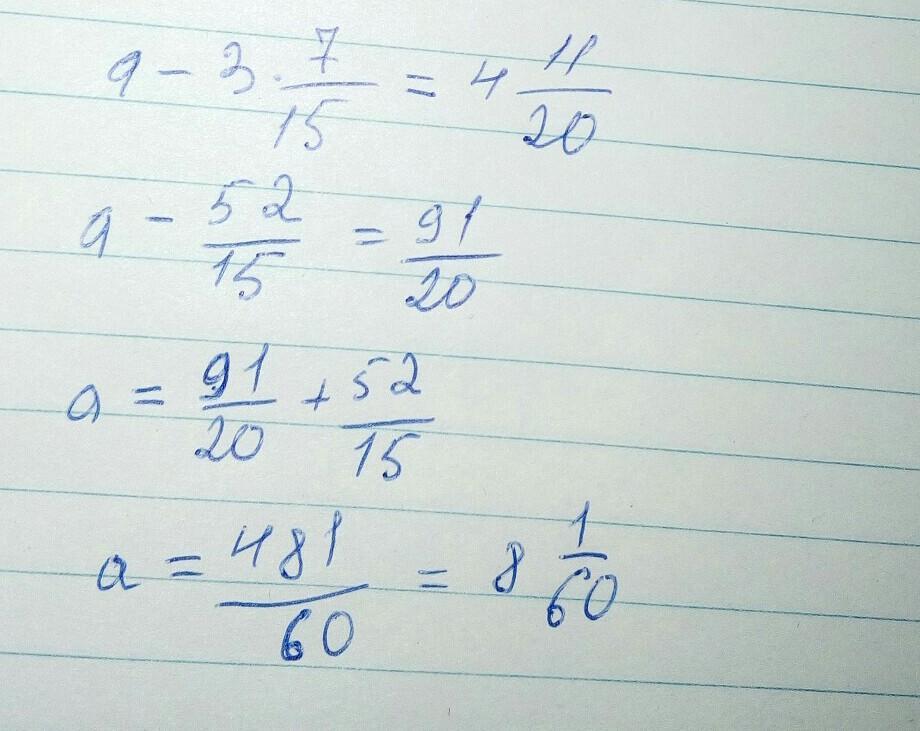 a - 3 · 7/15 = 4 11/20
a - 52/15 = 91/20
a = 91/20 + 52/15
a = 481/60 = 8 1/60